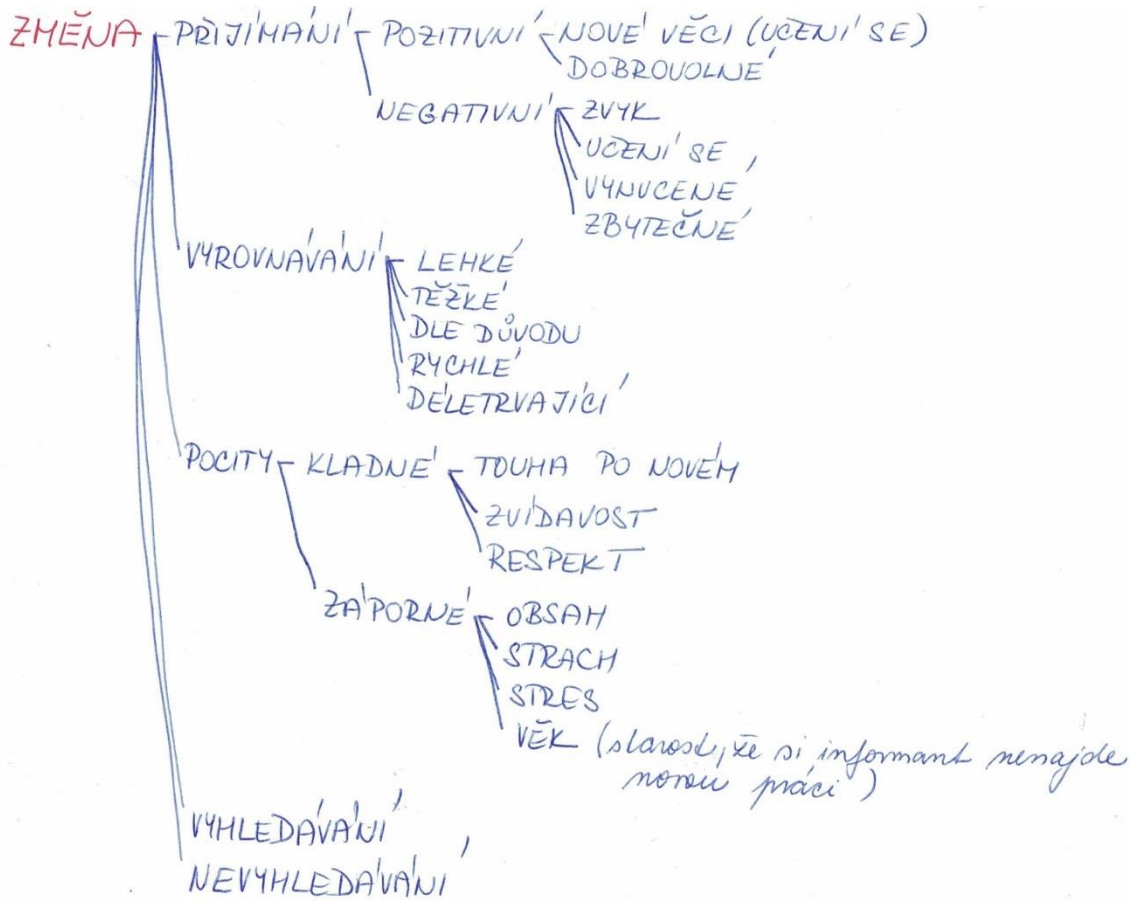 ZMĚNA PŘIJÍMÁNÍ POZITIVNÍ NOVÉ VĚCI (UČENÍ SE)
DOBROVOLNÉ
NEGATIVNÍ ZVYK
UČENÍ SE
VYNUCENÉ
ZBYTEČNÉ
VYROVNÁVÁNÍ LEHKÉ
TĚŽKÉ
DLE DŮVODU
RYCHLÉ
DÉLETRVAJÍCÍ
POCITY KLADNÉ TOUHA PO NOVÉM
ZVÍDAVOST
RESPEKT
ZÁPORNÉ OBSAH
STRACH
STRES
VĚK (starost, že si informant nenajde
novou práci)
VYHLEDÁVÁNÍ
NEVYHLEDÁVÁNÍ